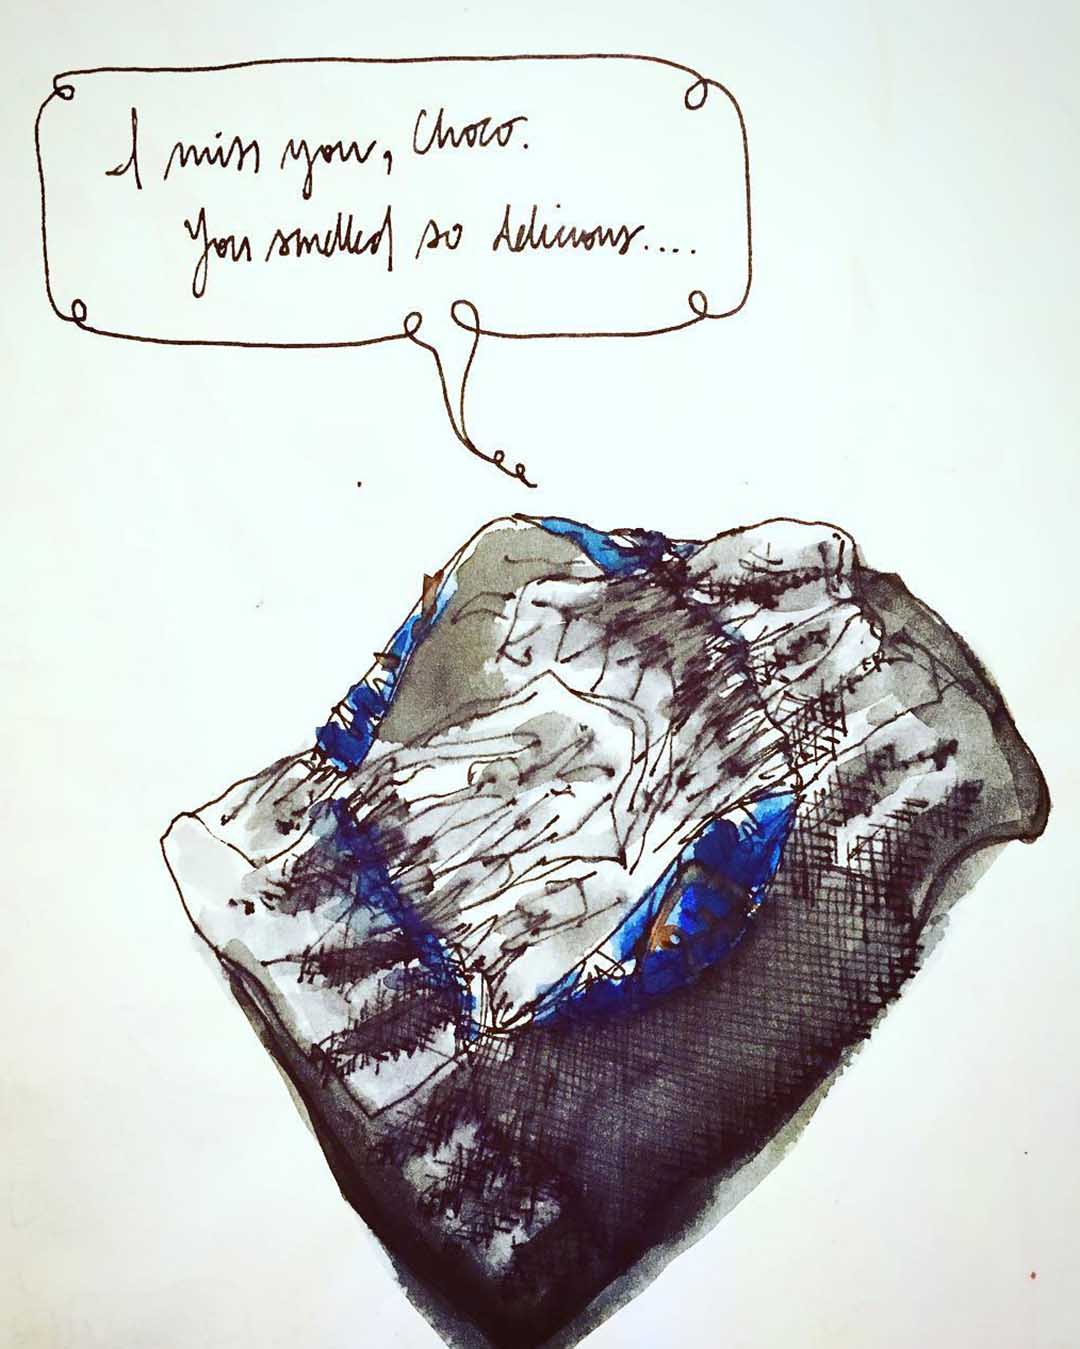 I miss you, Choco.
You smelled so delicious....